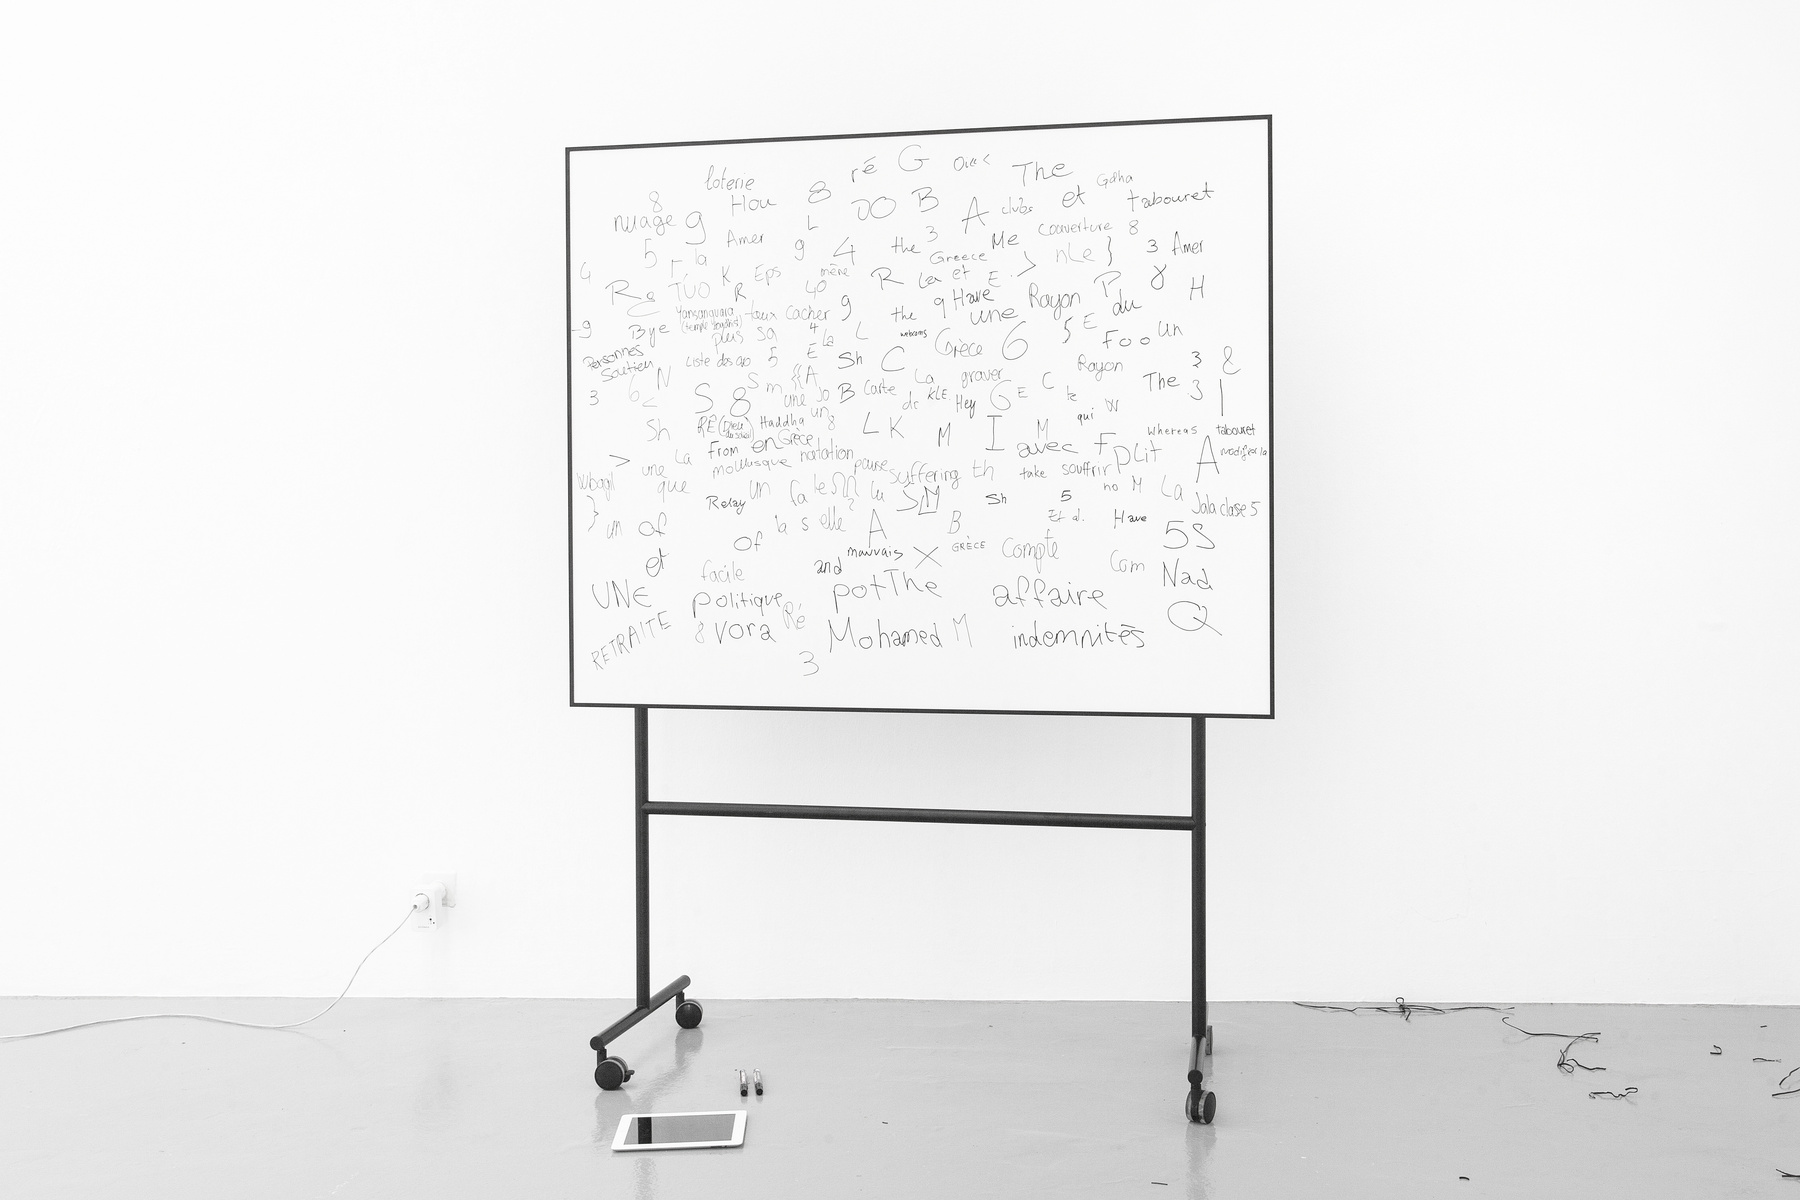 ré G The
loterie 8 Gdha
8 Hou DO B A clubs et tabouret
nuage g L
5 la Amer g 4 the 3 Me couverture 8
Greece nLe } 3 Amer
G r K Eps mène R Lea et E. > P 8 H
Re TUO R 40 g g Have Rayon du
Yansanquara taux cacher the une
-9 Bye plus sa 4 La L webcams Grèce 6 5 E Foo un
Personnes Soutien Liste des ap 5 E Sh C Rayon 3 &
6 N S m {{A La graver C The 3
3 < S 8 une Jo B Carte dc KLE Hey G E te W |
Sh RE (Dieu du soleil) Haddha un 8 L K M I M qui Whereas tabouret
> une La From en Grèce avec F pLit A modifier la
Wbagll que mollusque natation pause suffering th take souffrir no M La
} Relay un la le ΩΩ Lu SM Sh 5 Jala clase 5
un of la s elle ? A B Et al. Have 5S
et of mauvais X GRÈCE Compte
facile and Com Nad
UNE politique Ré potThe affaire Q
RETRAITE 8 vora Mohamed M indemnités
3